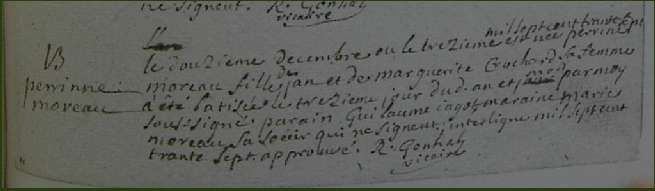 ne signent. R. Gonhay
vicaire
B
perrinne
moreau
mil sept cent trante sept
le douzieme decembre ou le trezieme est née perrinne
moreau fille de jan et de marguerite Crochard sa femme
a été batisée le trezieme jour dudt an et par moy
soussigné. parain Guilaume cagot maraine marie
moreau sa soeur qui ne signent, interligne mil sept cent
trante sept approuvé. R. Gonhay
vicaire